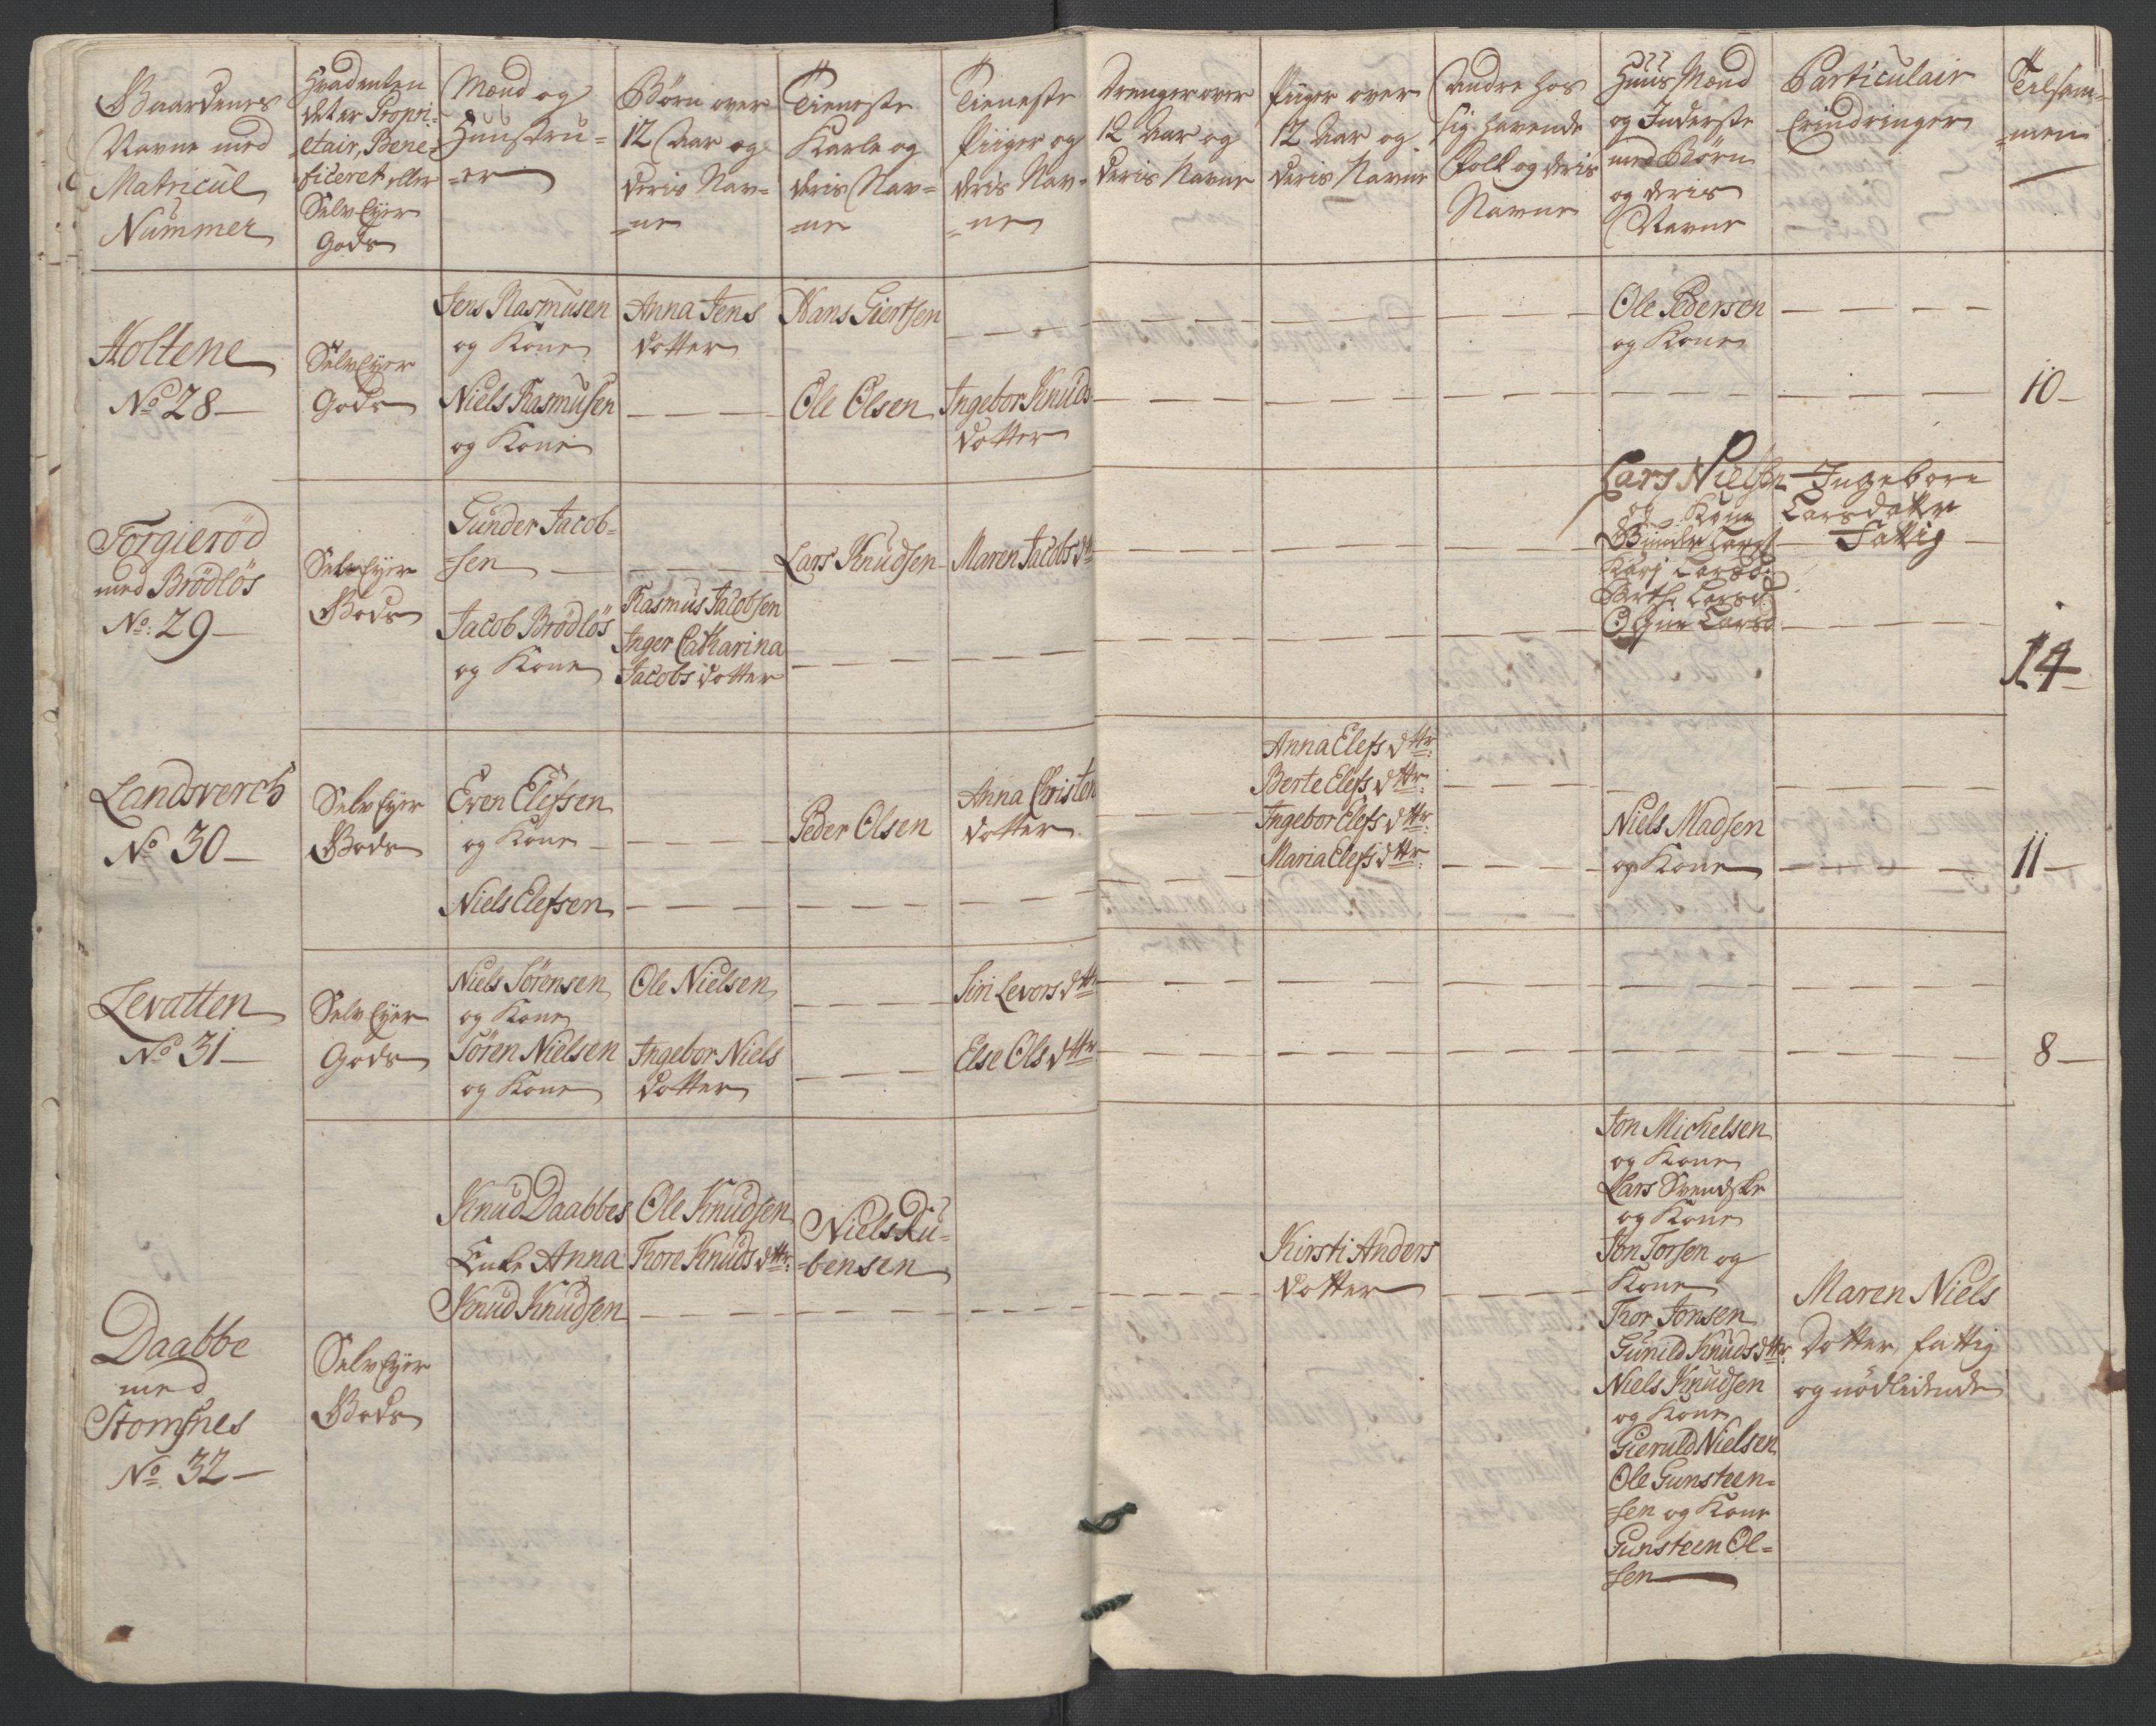 Gaardenes
Navne med
Matricul
Nummer
Hvad enten
det er Propri-
etair, Bene-
ficeret eller
Selv Eyer
Gods
Mænd og
Huustru-
-er
Børn over
12 Aar og
deris Nav-
-ne
Tieneste
Karle og
deris Nav-
-ne
Tieneste
Piiger og
deris Nav-
-ne
Drenger over
12 Aar og
deris Navne
Piiger over
12 Aar og
deris Navne
Andre hos
sig havende
Folk og deris
Navne
Huus Mænd
og Inderste
med Børn
og deris
Navne
Particulair
Erindringer
Tilsam-
-men
Holtene
No 28
Selv Eyer
Gods
Jens Rasmusen
og Kone
Niels Rasmusen
og Kone
Anna Jens
Dotter
Hans Giertsen
Ole Olsen
Ingebor Knuds
Dotter
Ole Pedersen
og Kone
10
Torgierød
med Brødløs
No: 29
Selv Eyer
Gods
Gunder Jacob-
sen
Jacob Brødløs
og Kone
Rasmus Jacobsen
Inger Catharina
Jacobs Dotter
Lars Knudsen
Maren Jacobs dtr
Lars Nielsen
og Kone
Kari Larsd:
Berthe Larsd.
Larsd
Ingebore
Larsdatter
Fattig
14
Landsverch
No 30
Selv Eyer
Gods
Even Elefsen
og Kone
Niels Elefsen
Peder Olsen
Anna Christen
Dotter
Anna Elefs dttr:
Berte Elefs dttr:
Ingebor Elefs dttr:
Maria Elefs dttr:
Niels Madsen
og Kone
11
Levatten
No 31
Selv Eyer
Gods
Niels Sørensen
og Kone
Søren Nielsen
og Kone
Ole Nielsen
Ingebor Niels
Dotter
Siri Levors dttr
Else Ols dttr
8
Daabbe
med
Stomsnes
No 32
Selv Eyer
Gods
Knud Daabbes
Enke Anna
Knud Knudsen
Ole Knudsen
Thore Knuds dttr:
Niels Ru-
-bensen
Kirsti Anders
Dotter
Jon Michelsen
og Kone
Lars Svendske
og Kone
Jon Torsen og
Kone
Thor Jonsen
Gunild Knuds dttr:
Niels Knudsen
og Kone
Gieruld Nielsen
Ole Gunsteen-
-sen og Kone
Gunsteen Ol-
-sen
Maren Niels
Dotter, fattig
og nødlidende